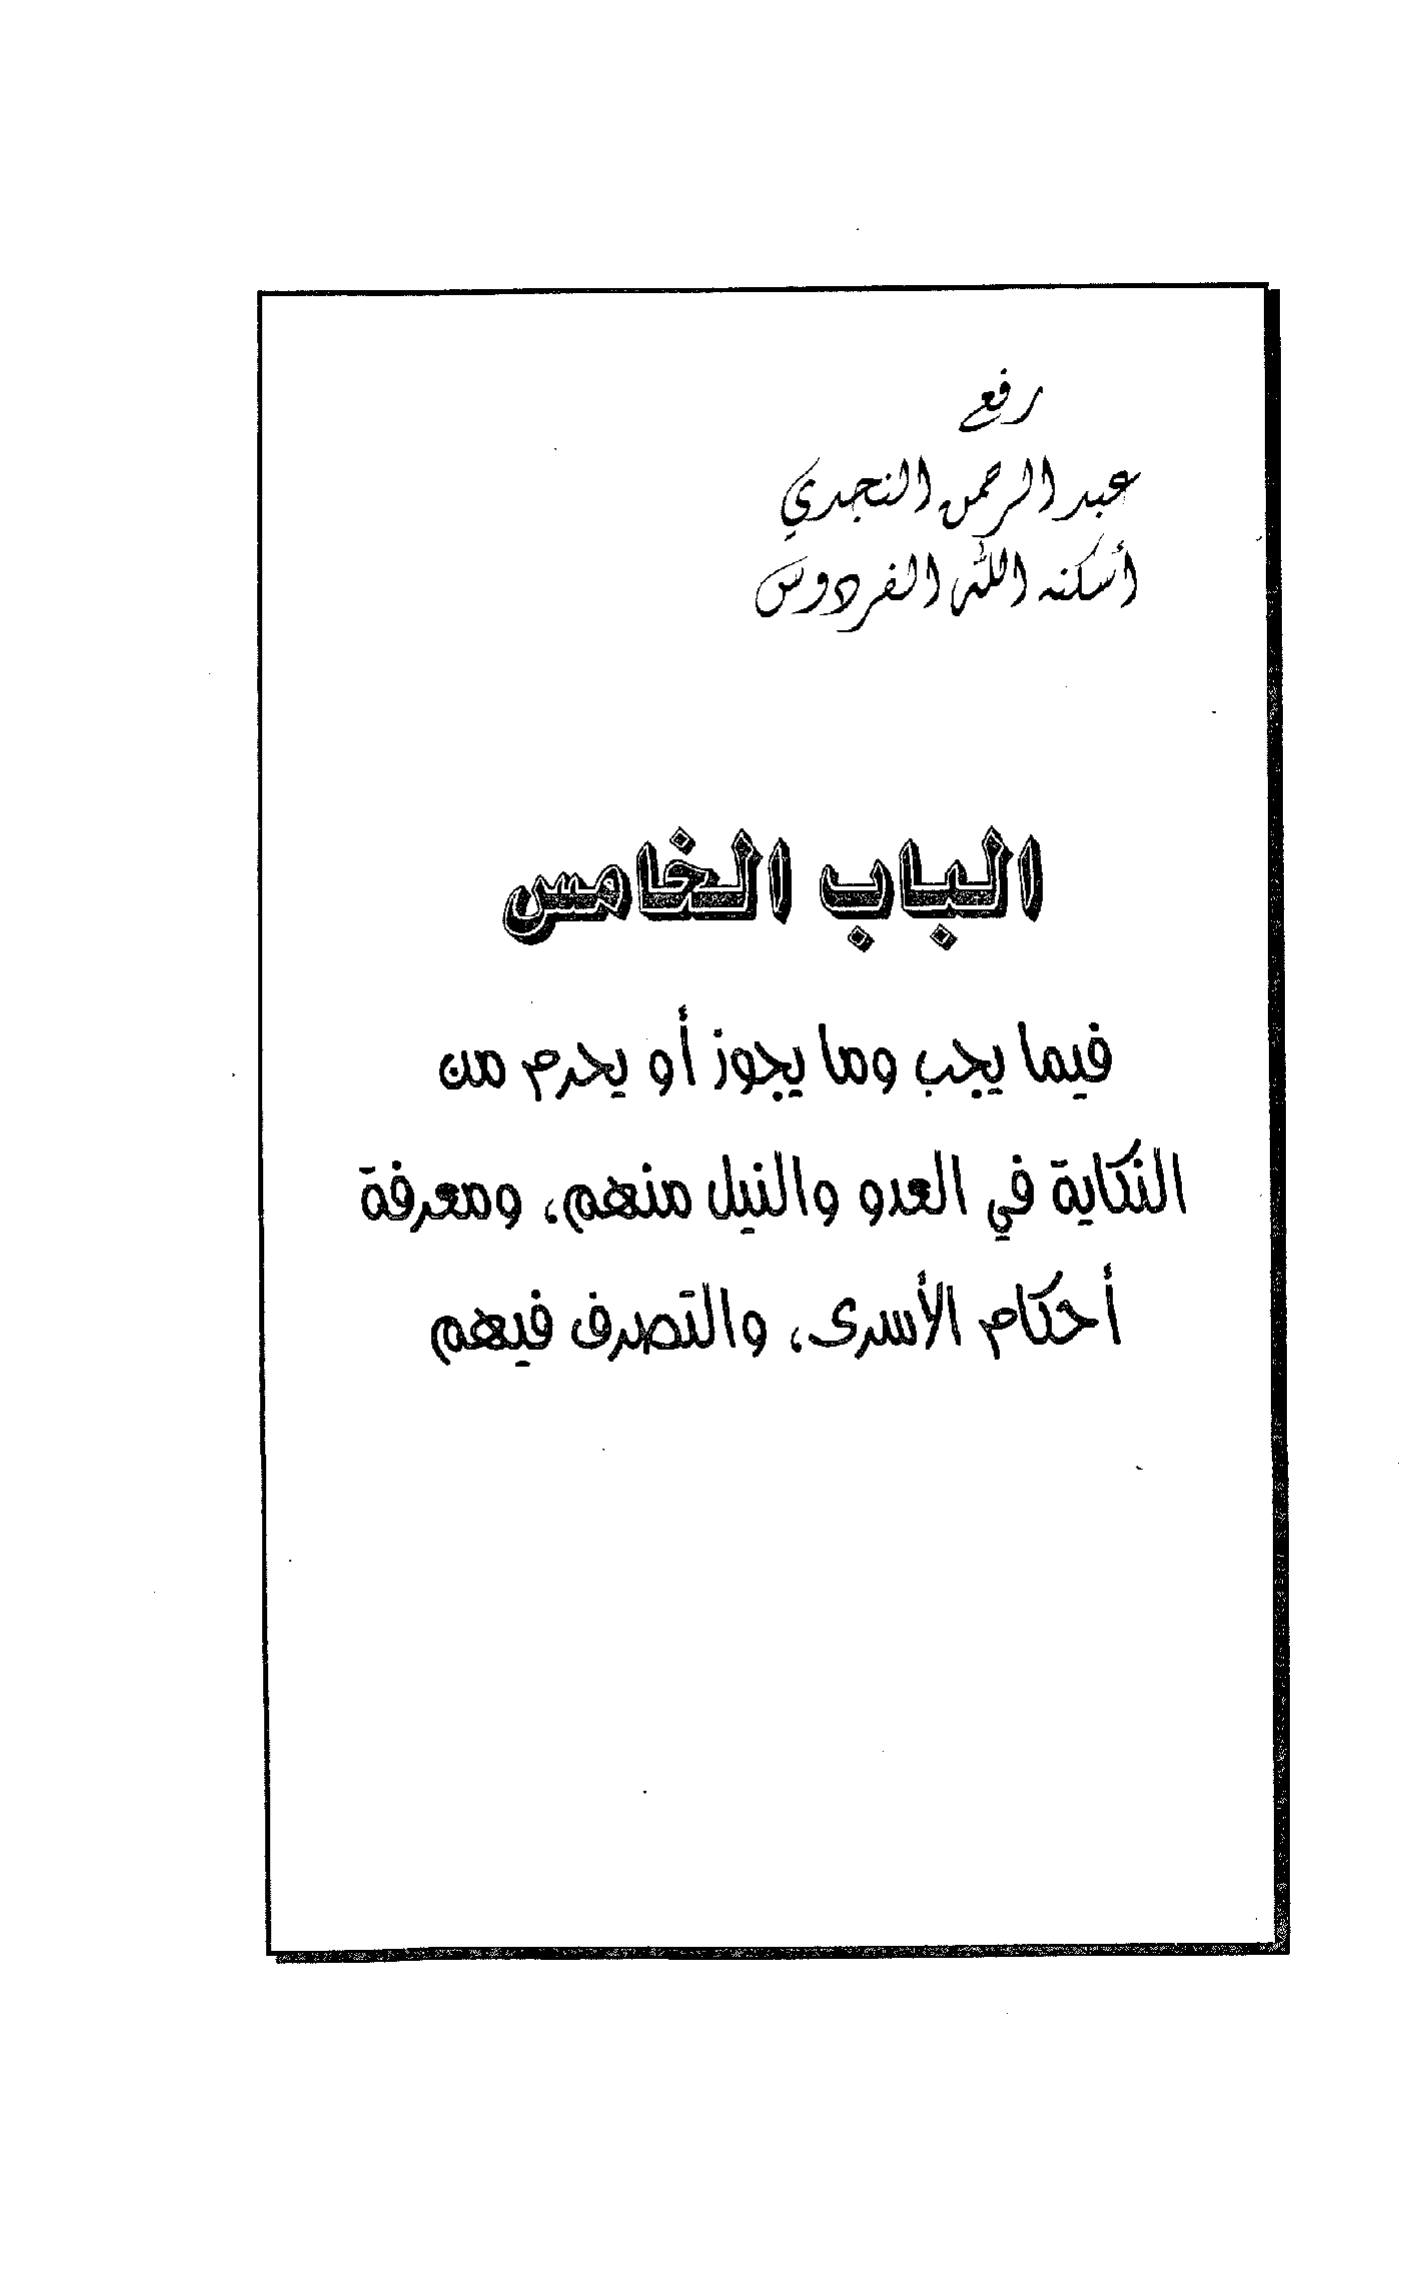 رفع
عبد الرحمن النجدي
أسكنه الله الفردوس
الباب الخامس
فيما يجب وما يجوز أو يحرم من
النكاية في العدو والنيل منهم، ومعرفة
أحكام الأسرى، والتصرف فيهم